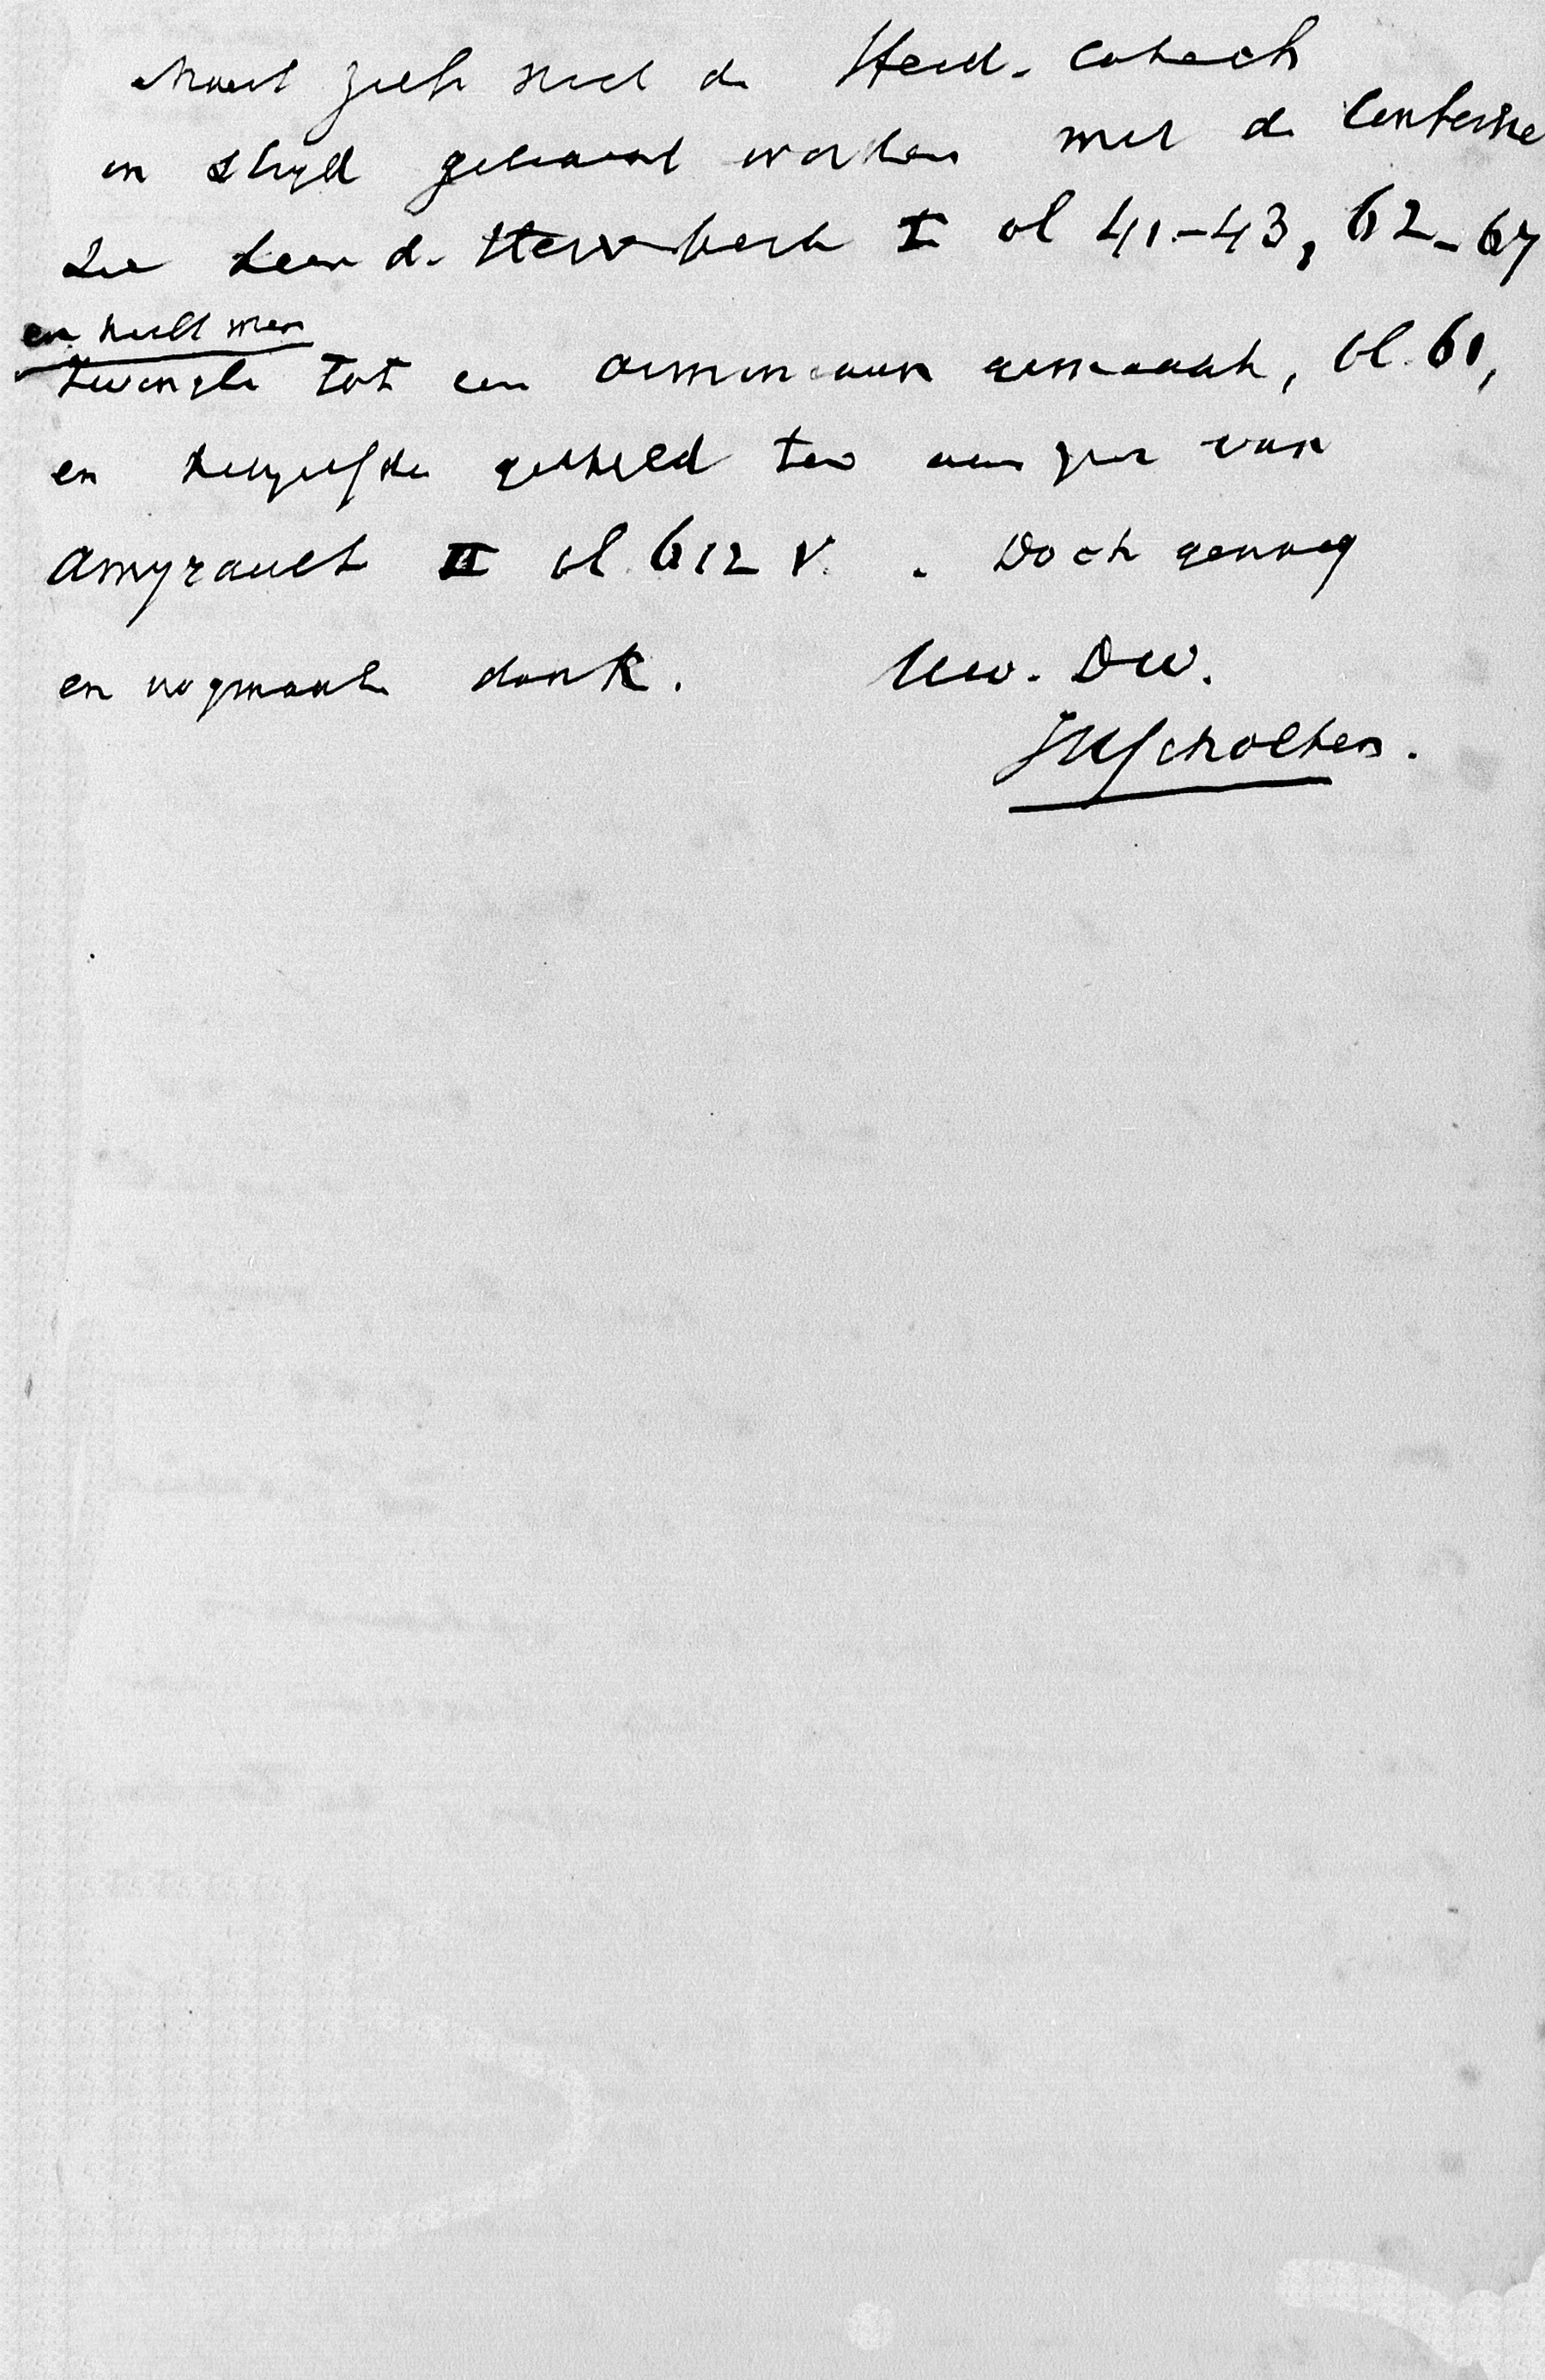 Moest zelfs niet de Heid. Catech
in strijd gebracht worden met de Conf.
Zie Leer d. Herv. Kerk I bl 41-43, 62-67
en heeft men
Zwingli tot een Arminiaan gemaakt, bl. 61,
en hetzelfde geheeld ten aanzien van
Amyrault II bl. 612 v. . Doch genoeg
en nogmaals dank. Uw. Dw.
JHScholten.